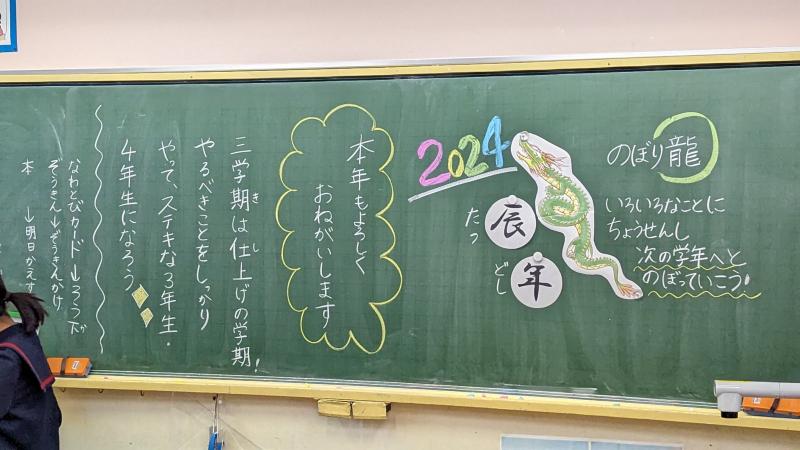 のぼり龍
いろいろなことに
ちょうせんし
次の学年へと
のぼっていこう!
2024
辰
たつ
年
どし
本年もよろしく
おねがいします
三学期は仕上げの学期!
き
し
やるべきことをしっかり
やって、ステキな3年生・
4年生になろう
なわとびカード→ろう下
か
ぞうきん→ぞうきんかけ
本 →明日かえす